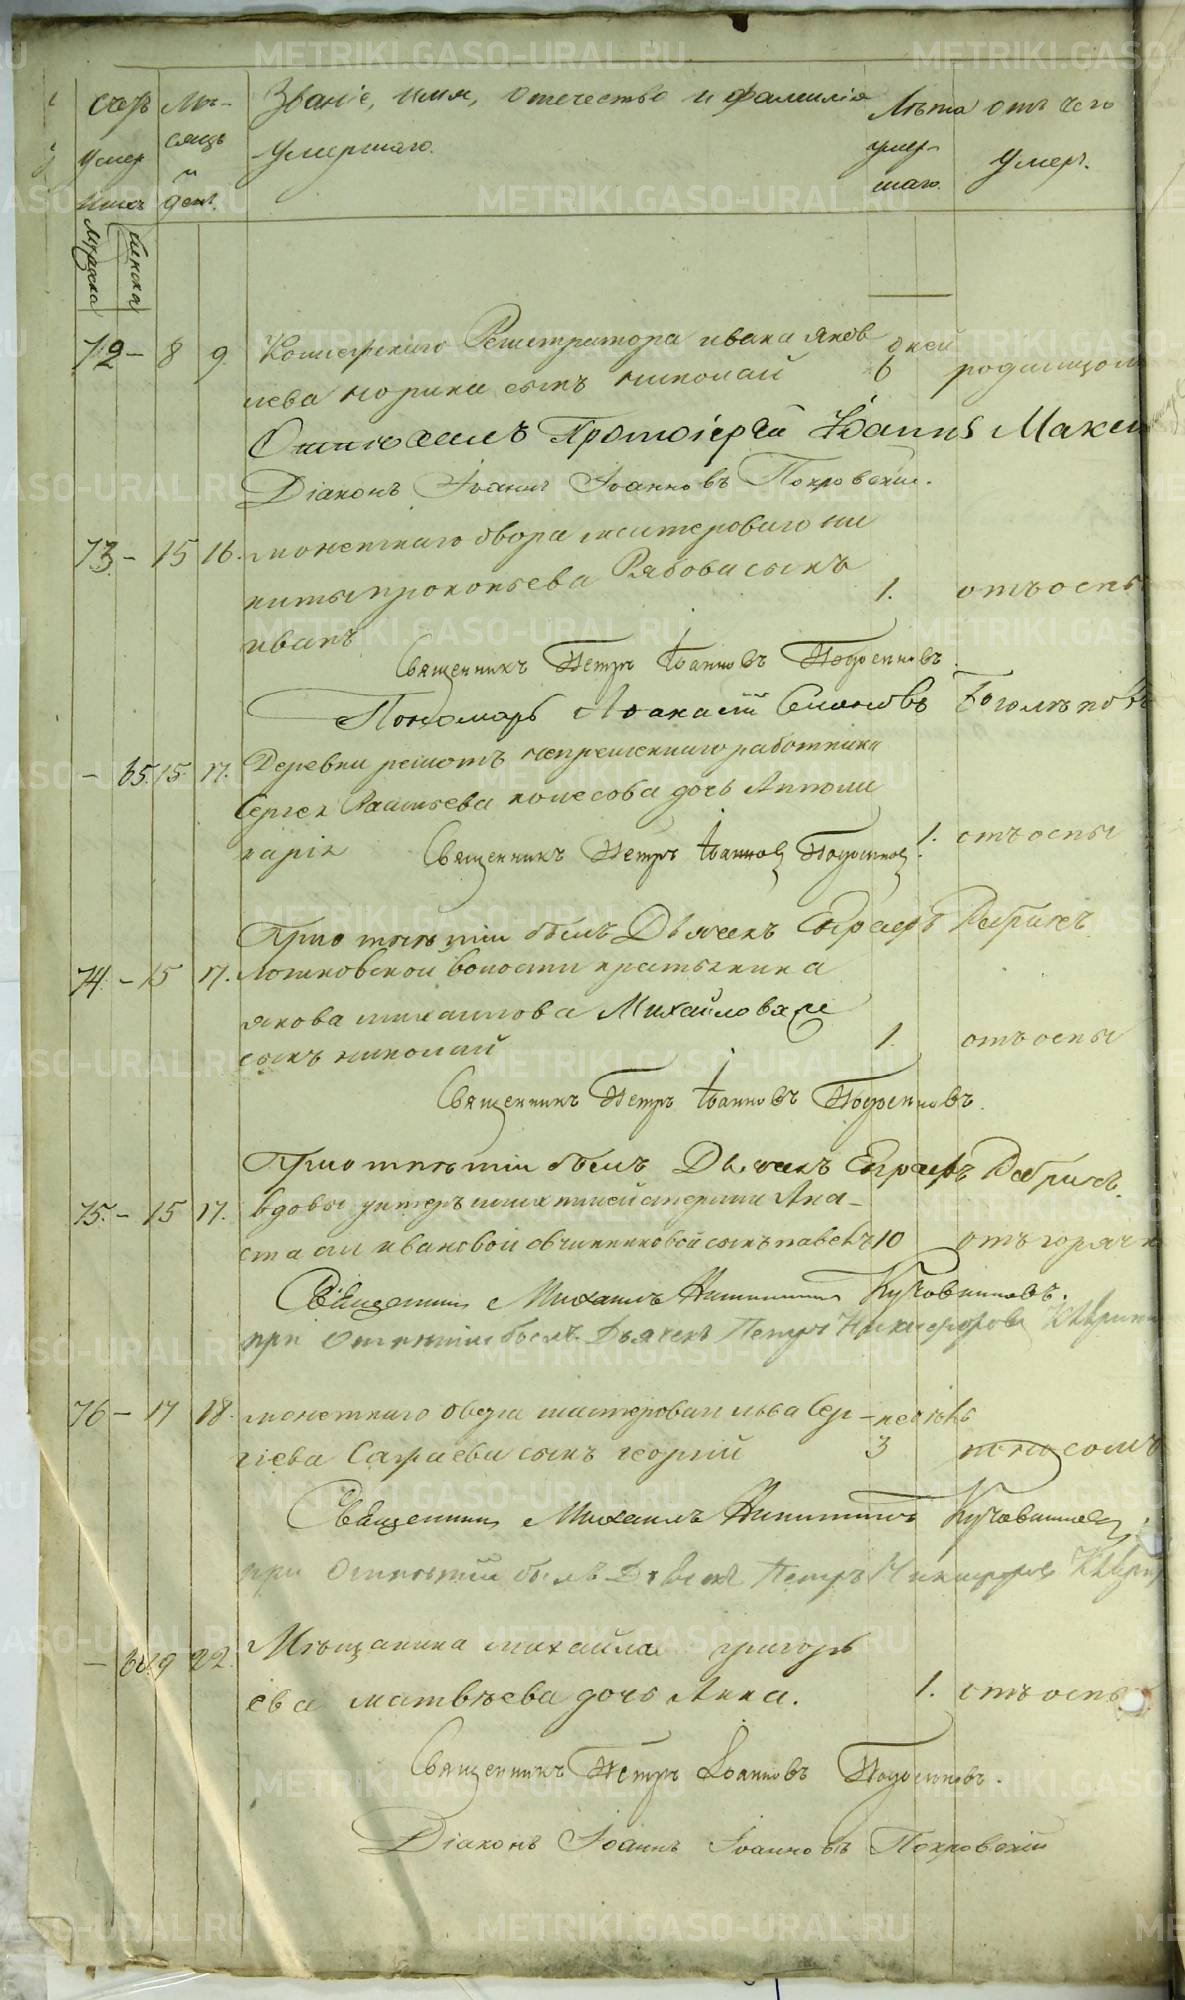 METRIKI.GASO-URAL.RU
счетъ Мѣ- Званіе, имя, отечество и фамилія Лѣта отъ чего
умер сяцъ умершаго. умер- умеръ.
шихъ и день. шаго.
Мужска женска
72 - 8 9. Колежскаго Регистратора ивана яков дней
лева корика сынъ николай 6 родимцом
Отпевалъ Протоіерей Іоаннъ Макси
Діаконъ Іоаннъ Іоанновъ Покровскій.
73. - 15 16. монетнаго двора мастероваго ни
киты прокопьева Рябова сынъ 1. отъ оспы
иванъ
Священникъ Петръ Іоанновъ Подосеновъ.
Пономарь Аѳанасій Симоновъ Боголѣпов
- 65. 15 17. Деревни решотъ непременнаго работника
Сергея Колесова дочь Аполли
нарія 1. отъ оспы
Священникъ Петръ Іоанновъ Подосеновъ.
При отпѣтіи былъ Дьячекъ Евграфъ
74. - 15 17. волости крестьянина
якова михайлова Михайловыхъ
сынъ николай 1. отъ оспы
Священникъ Петръ Іоанновъ Подосеновъ.
При отпѣтіи былъ Дьячекъ Евграфъ
75. - 15 17. вдовы Ана-
стасіи ивановой овчинниковой сынъ павелъ 10 отъ горячк
Священникъ Михаилъ Никитинъ Кучовшиновъ.
при отпѣтіи былъ Дьячекъ Петръ Никифоровъ
76 - 17 18. монетнаго двора мастероваго льва Сер- недѣль
гіева Сафаева сынъ георгій 3 поносомъ
Священникъ Михаилъ Никитинъ
при отпѣтіи былъ Дьячекъ Петръ Никифоровъ
- 66. 19 22. Мѣщанина михайла григорь
ева матвѣева дочь Анна. 1. отъ оспы
Священникъ Петръ Іоанновъ Подосеновъ.
Діаконъ Іоаннъ Іоанновъ Покровскій